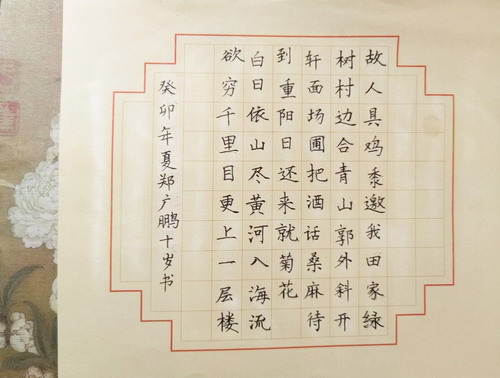 故人具鸡黍邀我田家绿
树村边合青山郭外斜开
轩面场圃把酒话桑麻待
到重阳日还来就菊花
白日依山尽黄河入海流
欲穷千里目更上一层楼
癸卯年夏郑广鹏十岁书